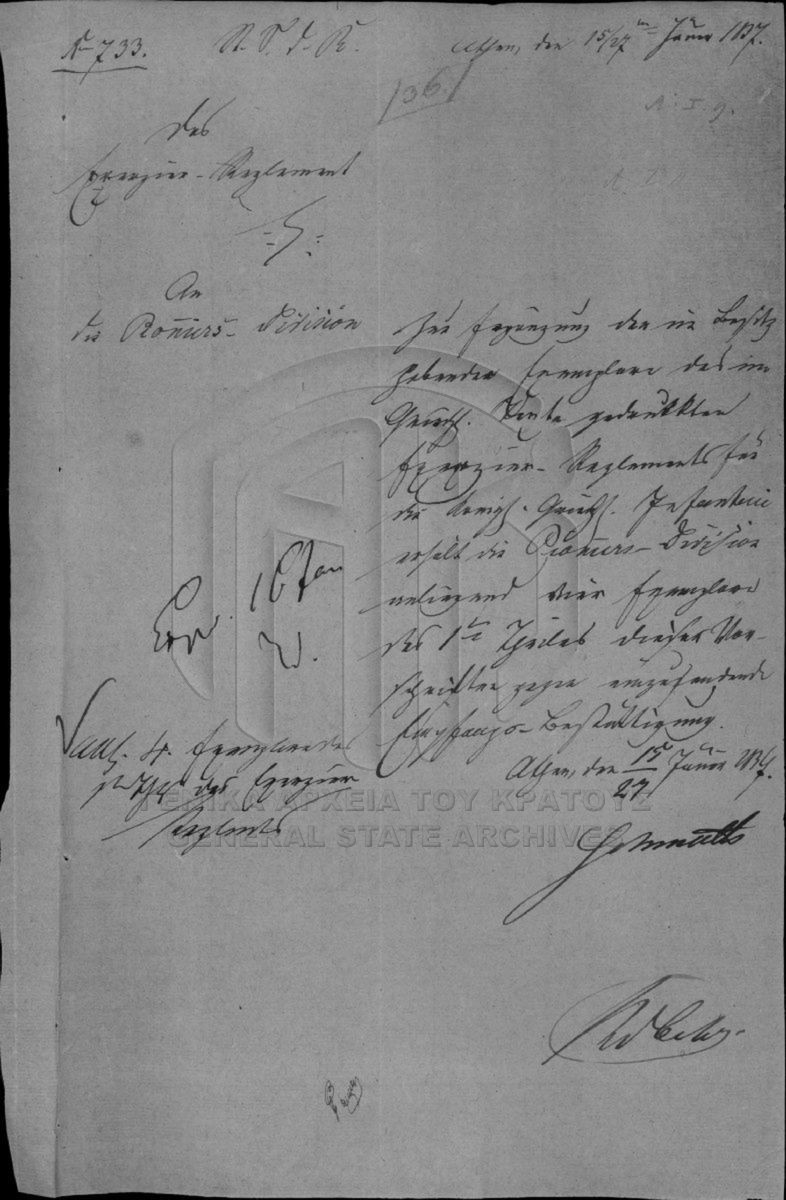 N 733.
St. S. d. K.
Athen, den 15/27 ten Jänner 1837.
136
N. I. 9.
Das
Exerzier-Reglement
An
die Pionniers-Division
Zur Ergänzung der im Besitz
habenden Exemplare des im
Griech. Texte gedruckten
Exerzier-Reglements für
die Königl. Griech. Infanterie
erhält die Pionniers-Division
anliegend vier Exemplare
des 1ten Theiles dieser Vor-
schriften gegen einzusendende
Empfangs-Bestättigung.
Athen, den 15/27 Jänner 1837.
Exp. 16 Jan
4. Exemplare des
des Exerzier
Reglmts
Schmaltz
ΓΕΝΙΚΑ ΑΡΧΕΙΑ ΤΟΥ ΚΡΑΤΟΥΣ
GENERAL STATE ARCHIVES